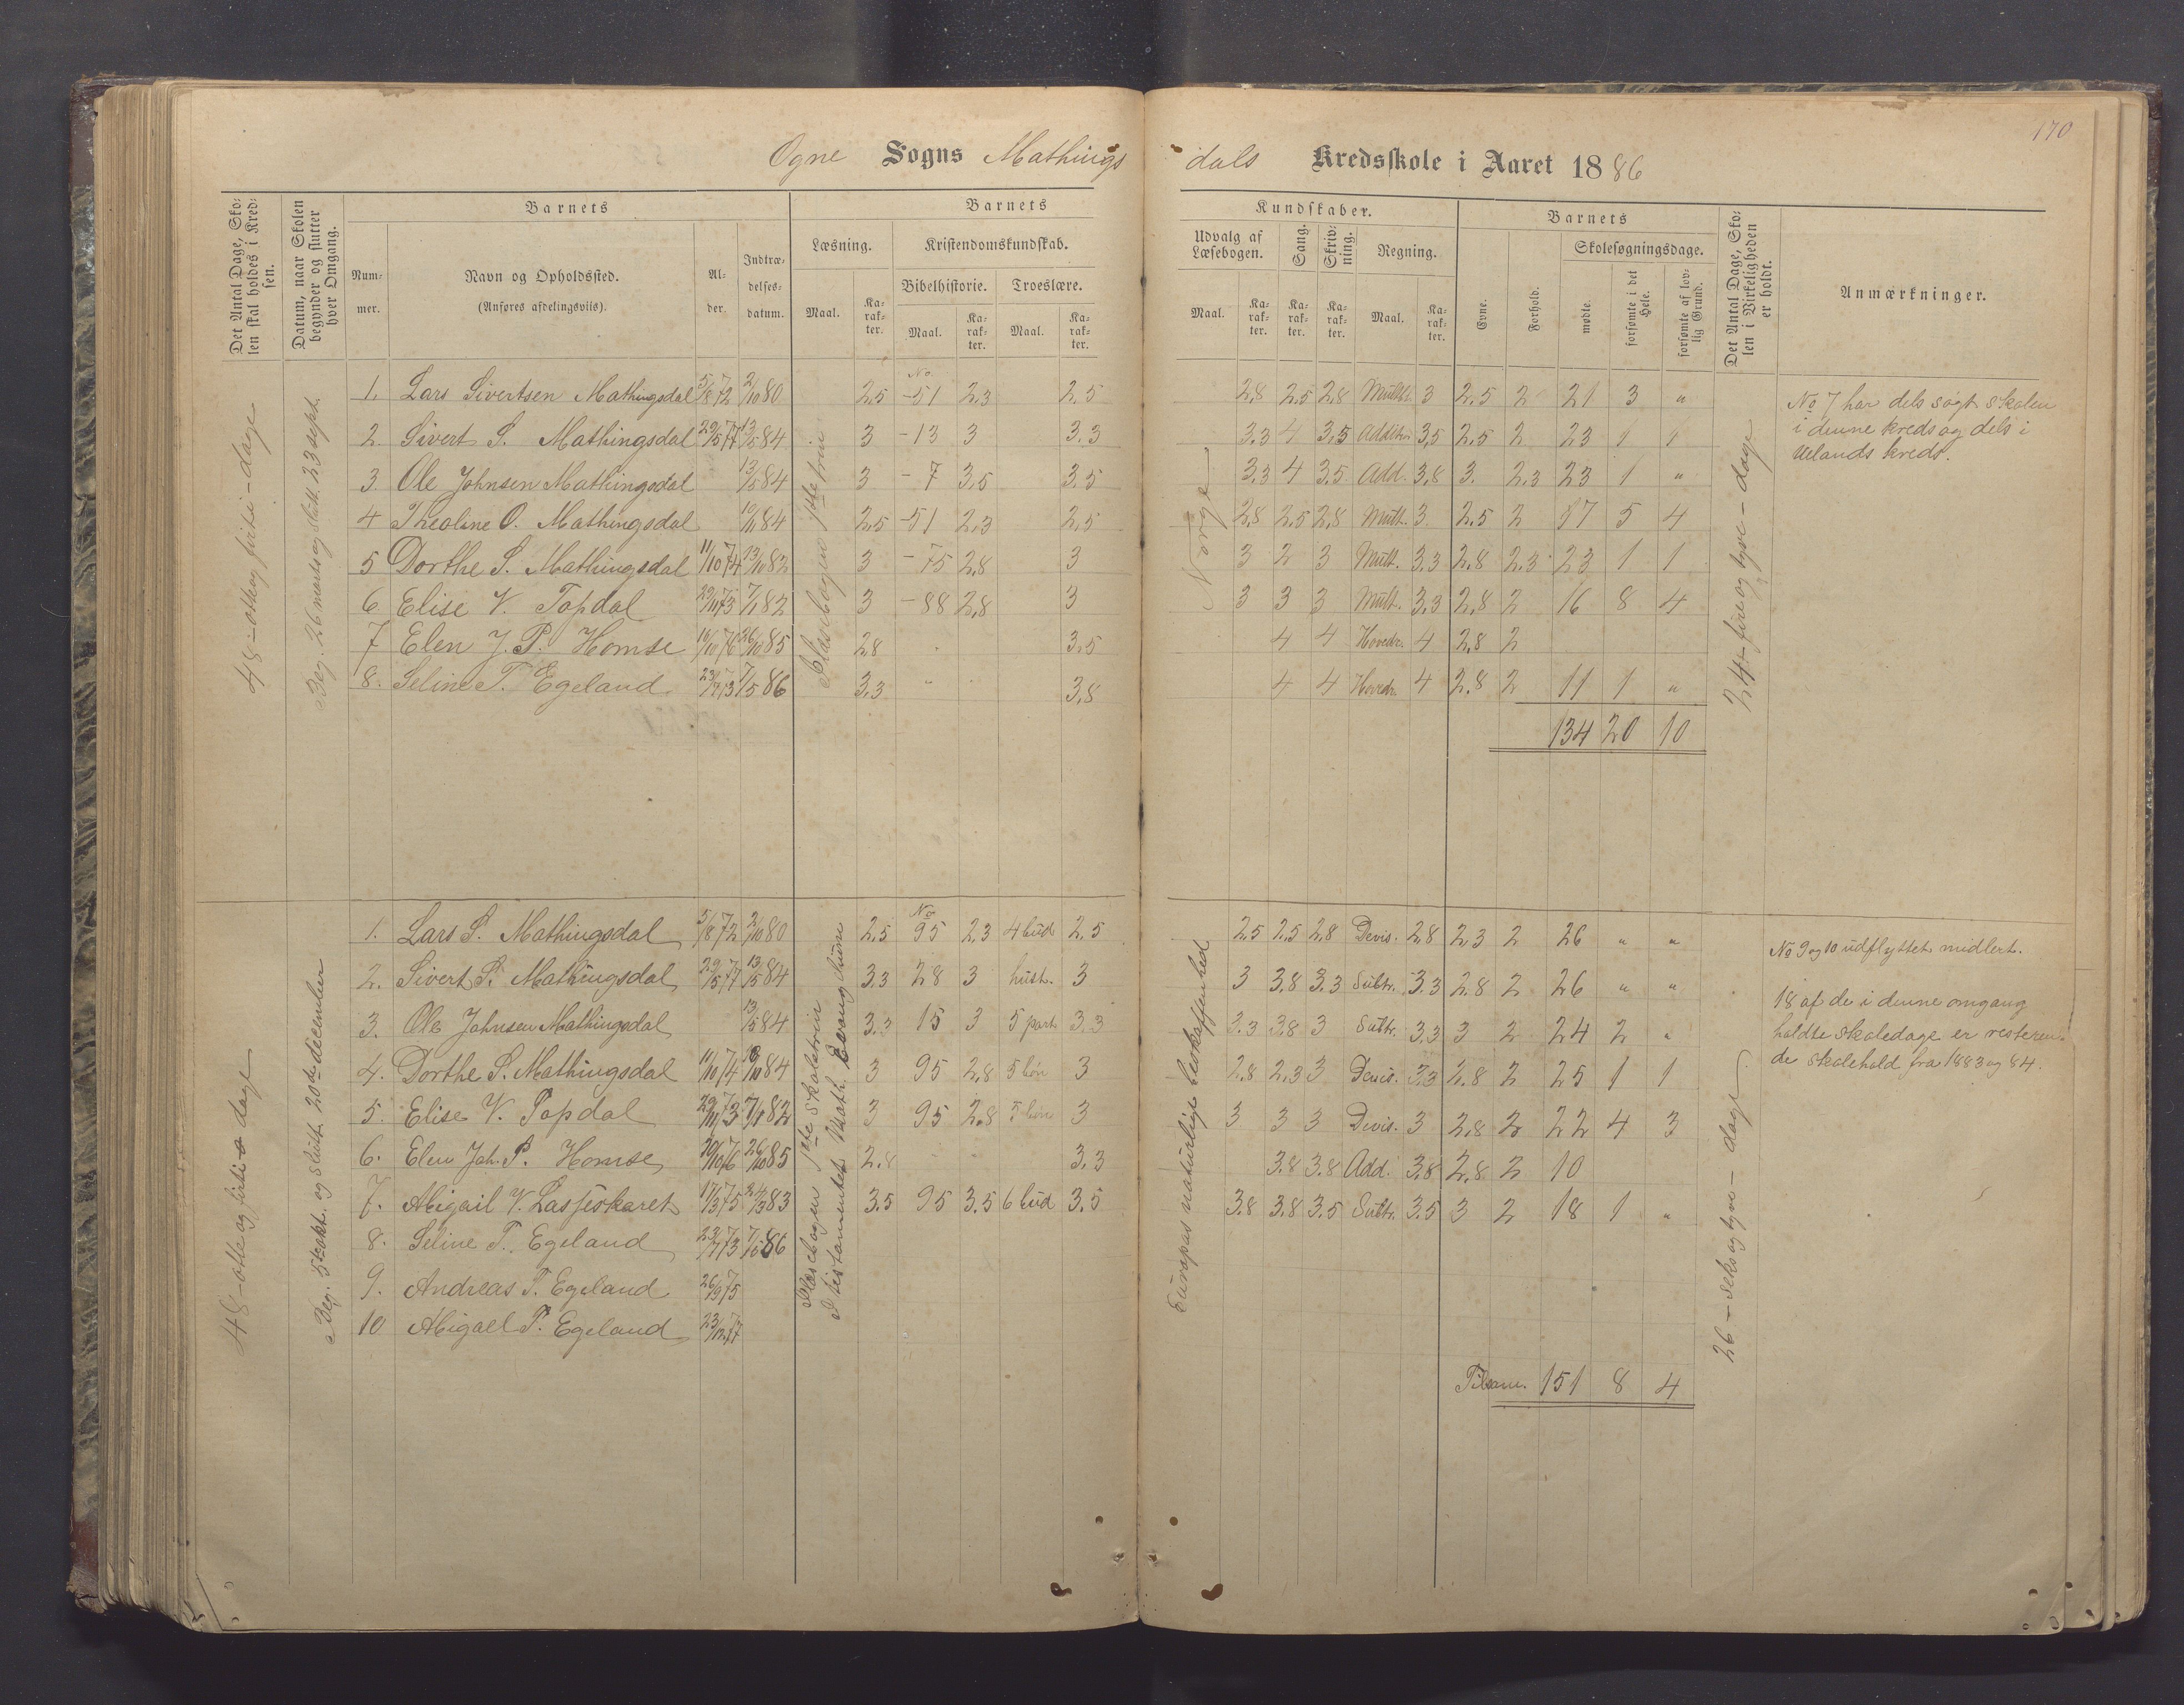 170
Ogne Sogns Mathings dals Kredsskole i Aaret 1886
Det Antal Dage, Sko-
len skal holdes i Kred-
sen.
Datum, naar Skolen
begynder og slutter
hver Omgang.
Barnets
Num-
mer.
Navn og Opholdssted.
(Anføres afdelingsviis).
Al-
der.
Indtræ-
delses-
datum.
Barnets
Læsning.
Maal.
Ka-
rak-
ter.
Kristendomskundskab.
Bibelhistorie.
Troeslære.
Maal.
Ka-
rak-
ter.
Maal.
Ka-
rak-
ter.
Kundskaber.
Udvalg af
Læsebogen.
Maal.
Ka-
rak-
ter.
Sang.
Ka-
rak-
ter.
Skriv-
ning.
Ka-
rak-
ter.
Regning.
Maal.
Ka-
rak-
ter.
Barnets
Evne.
Forhold.
Skolesøgningsdage.
mødte.
forsømte i det
Hele.
forsømte af lov-
lig Grund.
Det Antal Dage, Sko-
len i Virkeligheden
er holdt.
Anmærkninger.
48 - otte og firti - dage
Beg. 26 marts og slutt. 23 sept.
I læsebogens 1ste trin
Norge
24 - fire og tyve - dage
1. Lars Sivertsen Mathingsdal 5/8 72 2/10 80 2,5 No -51 2,3 2,5 2,8 2,5 2,8 Multl. 3 2,5 2 21 3 "
2. Sivert S. Mathingsdal 29/5 77 13/5 84 3 -13 3 3.3 3.3 4 3,5 Addition 3,5 2,5 2 23 1 1
3. Ole Johnsen Mathingsdal 13/5 84 3 -7 3,5 3,5 3,3 4 3,5 Add. 3,8 3. 2,3 23 1 "
4 Theoline O. Mathingsdal 10/11 84 2,5 -51 2,3 2,5 2,8 2,5 2,8 Mult. 3 2,5 2 17 5 4
5 Dorthe S. Mathingsdal 11/10 74 13/10 82 3 -75 2,8 3 3 2 3 Mult. 3,3 2,8 2,3 23 1 1
6 Elise V. Topdal 29/11 73 7/1 82 3 -88 2,8 3 3 3 3 Mult. 3,3 2,8 2 16 8 4
7 Elen J. P. Homse 10/10 76 26/10 85 2,8 3,5 4 4 Hovedr. 4 2,8 2
8. Seline T. Egeland 23/7 73 7/5 86 3,3 " 3,8 4 4 Hovedr. 4 2,8 2 11 1 "
134 20 10
No 7 har dels søgt skolen
i denne kreds og dels i
Uelands kreds.
48 - otte og firti - dage
Beg. 5te okt. og slutt. 20de december
I læsebogen 1ste skoletrin
I testamentet Math. Evangelium
Europas naturlige beskaffenhed
26 - seks og tyve - dage
1. Lars S. Mathingsdal 5/8 72 2/10 80 2,5 No 95 2,3 4 bud 2,5 2,5 2,5 2,8 Devis. 2,8 2,3 2 26 " "
2. Sivert S. Mathingsdal 29/5 77 13/5 84 3.3 28 3 hust. 3 3 3.8 3.3 Subtr. 3.3 2.8 2 26 " "
3. Ole Johnsen Mathingsdal 13/5 84 3.3 15 3 5 part 3.3 3.3 3.8 3 Subtr. 3.3 3 2 24 2 "
4. Dorthe S. Mathingsdal 11/10 74 19/10 84 3 95 2,8 5 bøn 3 2.8 2.3 3 Devis. 3.3 2.8 2 25 1 1
5. Elise V. Topdal 29/11 73 7/1 82 3 95 2.8 5 bøn 3 3 3 3 Devis. 3 2.8 2 22 4 3
6. Elen Joh. P. Homse 10/10 76 26/10 85 2.8 3.3 3.8 3.8 Add. 3.8 2.8 2 10
7. Abigail V. Lasseskaret 17/3 75 24/3 83 3.5 95 3.5 6 bud 3.5 3.8 3.8 3.5 Subtr. 3.5 3 2 18 1 "
8. Seline T. Egeland 23/7 73 7/5 86
9. Andreas T. Egeland 26/9 75
10 Abigael T. Egeland 23/12 77
Tilsam. 151 8 4
No 9 og 10 udflyttet midlert.
18 af de i denne omgang
holdte skoledage er resteren-
de skolehold fra 1883 og 84.